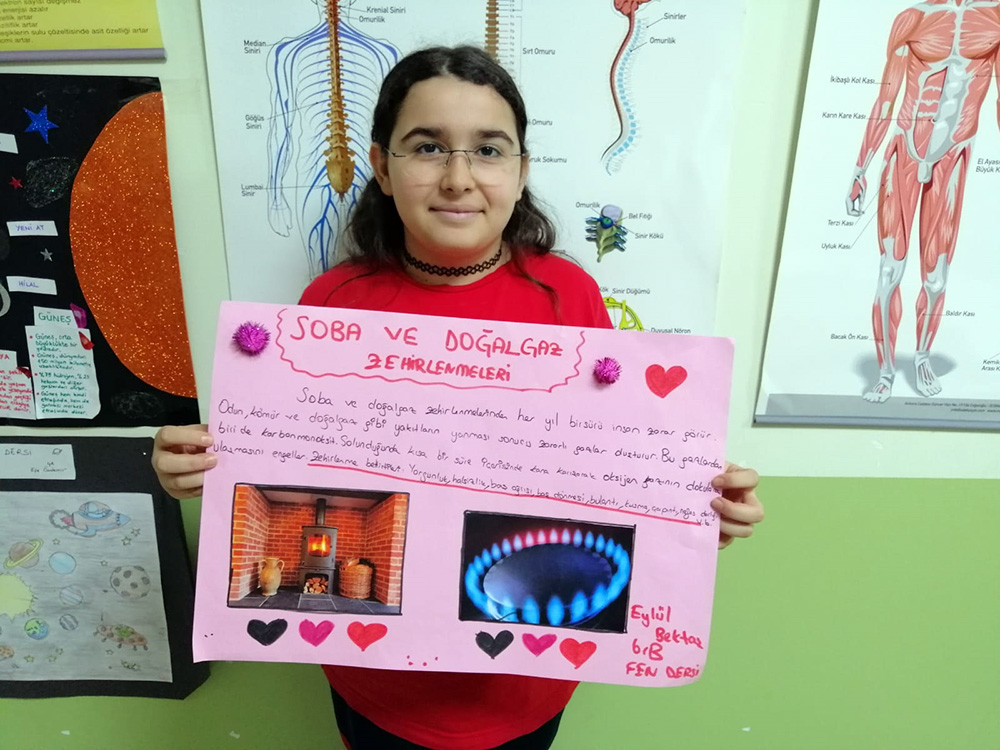 elektron sayısı değişmez
enerjisi azalır
artar
artar
eşiklerin sulu çözeltisinde asit özelliği artar
Krenial Siniri
Omurilik
Median
Siniri
Göğüs
Siniri
Lumbal
Sinir
Sırt Omuru
Omuru
Kuyruk Sokumu
Sinirler
Omurilik
Omurilik
Bel Fıtığı
Sinir Kökü
Sinir Düğümü
Duyusal Nöron
İkibaşlı Kol Kası
Karın Kare Kası
El Ayası
Büyük
Terzi Kası
Uyluk Kası
Baldır Kası
Bacak Ön Kası
Kası
YENİ AY
HİLAL
GÜNEŞ
DERSİ
SOBA VE DOĞALGAZ
ZEHİRLENMELERİ
Soba ve doğalgaz zehirlenmelerinden her yıl birsürü insan zarar görür.
Odun, kömür ve doğalgaz gibi yakıtların yanması sonucu zararlı gazlar oluşturulur. Bu gazlardan
biri de karbonmonoksit. Solunduğunda kısa bir süre içerisinde kana karışarak oksijen gazının
ulaşmasını engeller. Zehirlenme belirtileri: Yorgunluk, halsizlik, baş ağrısı, baş dönmesi, bulantı, kusma, çarpıntı,
Eylül
Bektaş
6/B
FEN DERSİ